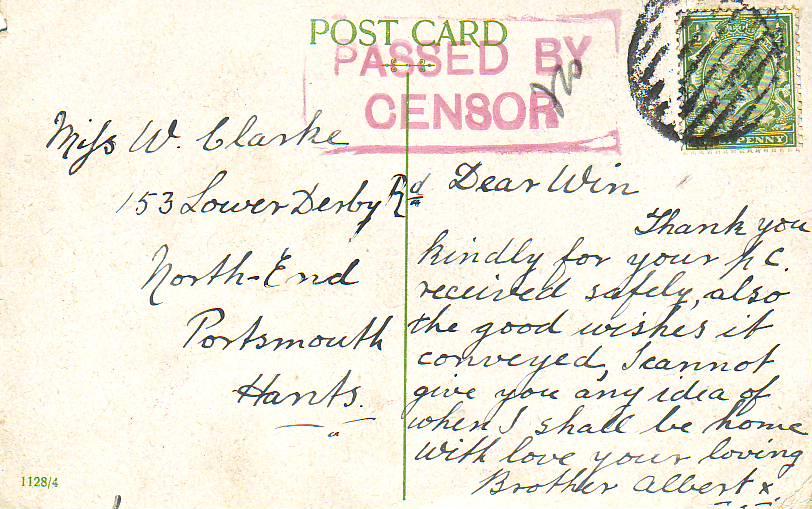 POST CARD
PASSED BY
CENSOR
PENNY
Miss W. Clarke
153 Lower Derby Rd
North-End
Portsmouth
Hants.
Dear Win
Thank you
kindly for your p.c.
received safely, also
the good wishes it
conveyed, I cannot
give you any idea of
when I shall be home
With love your loving
Brother Albert x.
1128/4